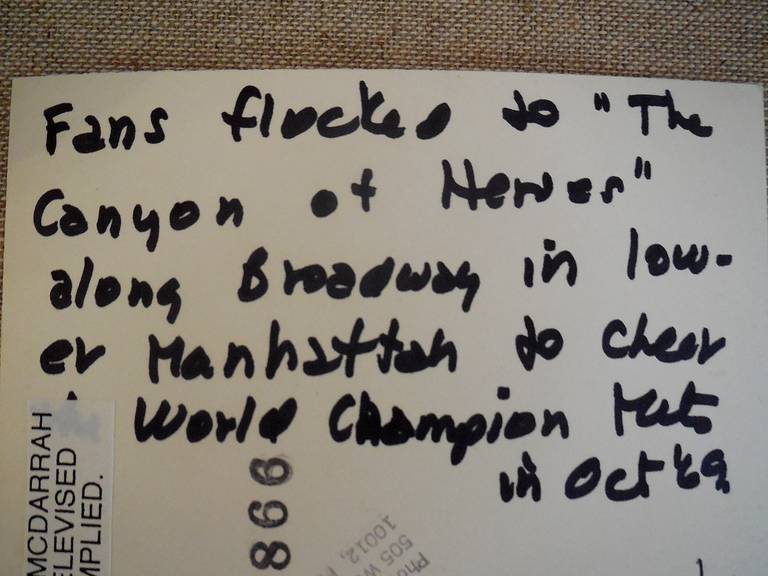 Fans flocked to "The
Canyon of Heroes"
along Broadway in low-
er Manhattan to cheer
World Champion Mets
in Oct '69
MCDARRAH
ELEVISED
MPLIED.
866
Pho
505 W
10012,